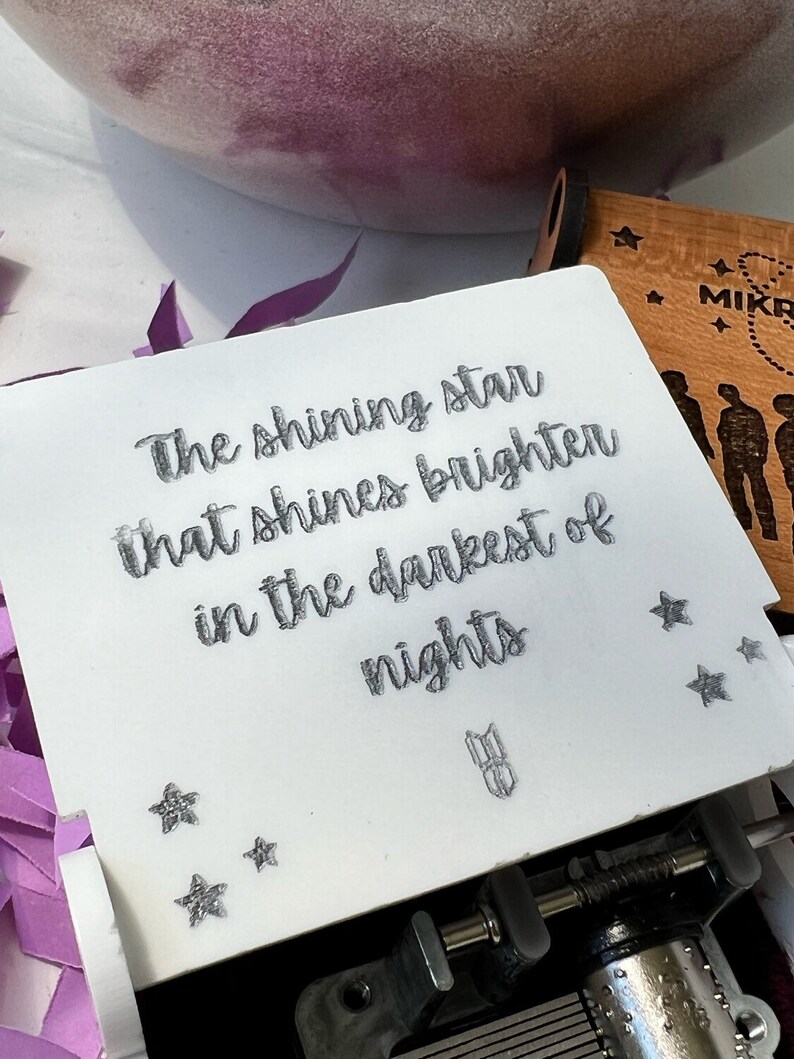 The shining star
that shines brighter
in the darkest of
nights
MIKR